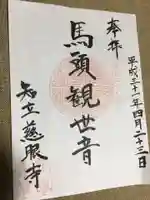 奉拝
平成三十一年四月二十三日
馬頭観世音
知立慈眼寺